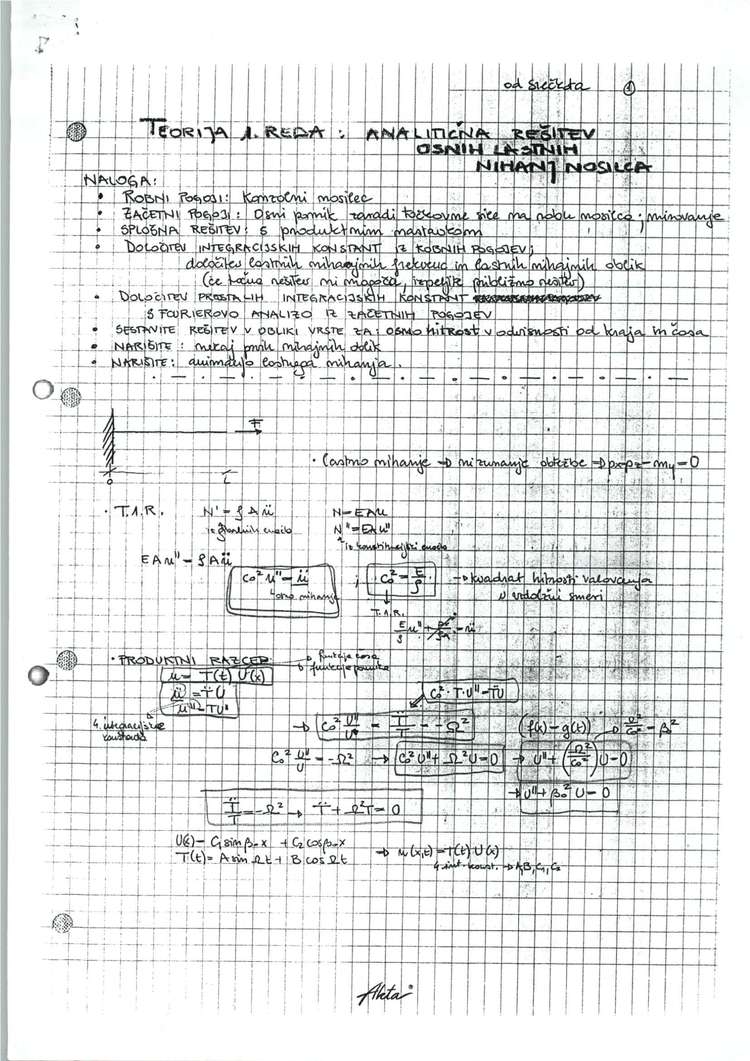 od Srečkota 1
TEORIJA 1. REDA: ANALITIČNA REŠITEV
OSNIH LASTNIH
NIHANJ NOSILCA
NALOGA:
• ROBNI POGOJI: Konzolni nosilec
• ZAČETNI POGOJI: Osni pomik zaradi točkovne sile na robu nosilca; mirovanje
• SPLOŠNA REŠITEV: s produktnim nastavkom
• DOLOČITEV INTEGRACIJSKIH KONSTANT IZ ROBNIH POGOJEV;
določitev lastnih nihajnih frekvenc in lastnih nihajnih oblik
(če točna rešitev ni mogoča, izpeljite približno rešitev)
• DOLOČITEV PREOSTALIH INTEGRACIJSKIH KONSTANT
S FOURIEROVO ANALIZO IZ ZAČETNIH POGOJEV
• SESTAVITE REŠITEV V OBLIKI VRSTE ZA: OSNO HITROST v odvisnosti od kraja in časa
• NARIŠITE: nekaj prvih nihajnih oblik
• NARIŠITE: animacijo lastnega nihanja.
F
0 L
• Lastno nihanje → ni zunanje obtežbe → px=pz=my=0
• T.1.R. N' = ρAü N=EAu'
N'=EAu''
iz konstitucijskih enačb
EAu'' = ρAü
c₀²u''=ü ; c₀²=E/ρ → kvadrat hitrosti valovanja
osno nihanje v vzdolžni smeri
T.1.R.
E/ρ u'' + px/ρA = ü
• PRODUKTNI RAZCEP funkcija časa
funkcija pomika
u = T(t) U(x)
ü = T̈U c₀²·T·U''=T̈U
u''=TU''
4. integracijske konstante
→ c₀² U''/U = T̈/T = -Ω² (f(x)=g(t)) Ω²/c₀² = β²
c₀² U''/U = -Ω² → c₀²U''+Ω²U=0 → U''+(Ω²/c₀²)U=0
→ U''+β₀²U=0
T̈/T=-Ω² → T̈+Ω²T=0
U(x)=C₁sinβ₀x + C₂cosβ₀x
T(t)=A sinΩt + B cosΩt → u(x,t)=T(t)·U(x)
4 int. konst. → A,B,C₁,C₂
Akta